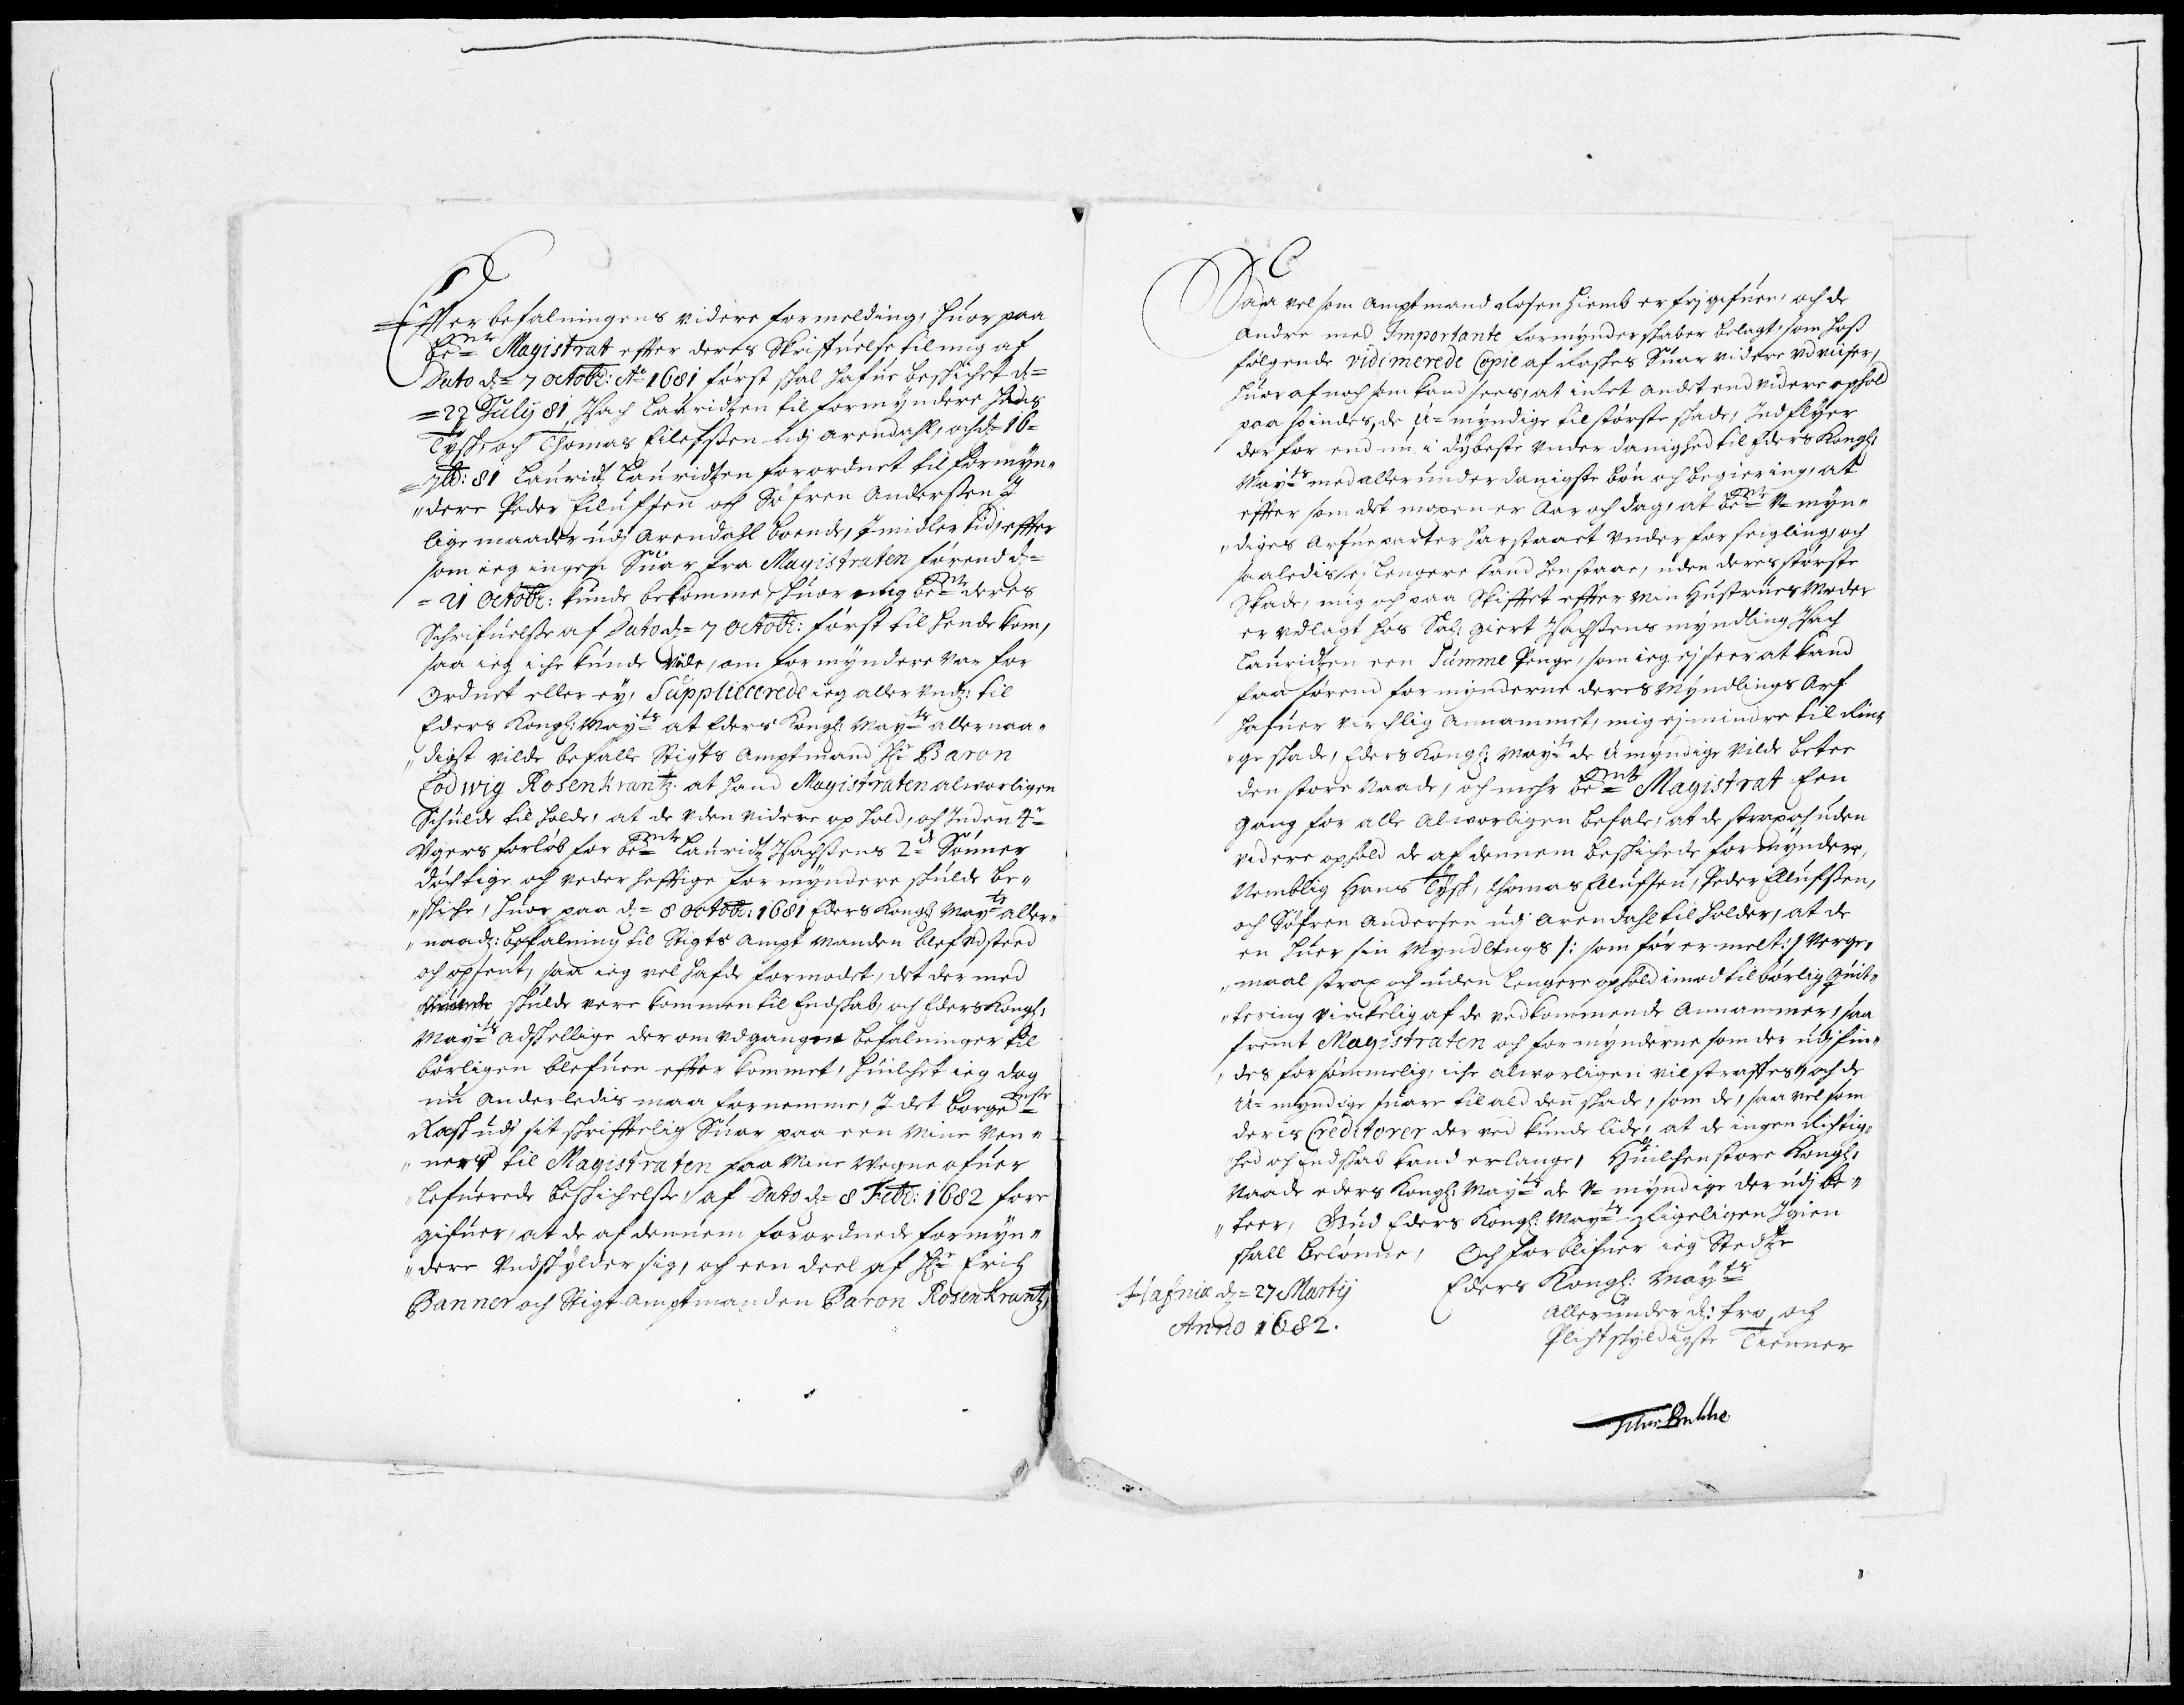 Effter befalningens videre formelding, huor paa
be.mte Magistrat effter deres Skrifuelse til mig af
Dato d:= 7 Octobr: Ao 1681 først skal hafue beskichet d:=
=22 Julij 81, Isach Lauridtzen til formyndere Hans
Tysk, och Thomas Eilefssen udj Arendahl, och d:= 16=
=7br: 81 Lauridtz Lauridtzen forordnet til formyn„
„dere Peder Eilufsen och Søfren Anderssen J
lige maader udj Arendahl boende, Jmidlertid, effter
som ieg ingen Suar fra Magistraten førend d:=
= 21 Octobr: kunde bekomme, huor mig be.mte deres
Schrifuelsse af Dato d:= 7 Octobr: først til hende kom,
saa ieg iche kunde vide, om formyndere var for
Ordnet eller ey, Supplicerede ieg aller Und: til
Eders Kongl: Mayts at Eders Kongl: Mayts allernaa„
„digst vilde befalle Stigts Amptmand Hr Baron
Lodwig Rosenkrantz. at hand Magistraten alvorligen
Schulde til holde, at de uden videre ophold, och Inden 4r
Ugers forløb for be.mte Lauridtz Isachssens 2de Sønner
døchtige och vederhefftige formyndere skulde be„
„skiche, huor paa d:= 8 Octobr: 1681 Eders Kongl: Mayts aller„
„naad: befalning til Stigts Ampt Manden blef udsteed
och opsent, saa ieg vel hafde formodet, det der med
skulde vere kommen til Endskab, och Eders Kongl:
Mayts adskellige der om udgangne befalninger til
børligen blefuen effter kommet, huilchet ieg dog
nu Anderledis maa fornemme, I det borgemester
Rask udj sit skrifftelig Suar paa een Mine Ven„
„ners til Magistraten paa Mine Wegne ofuer
lefuerede beskichelsse, af Dato d:= 8 Febr: 1682 fore
gifuer, at de af dennem forordnede formyn„
„dere Undskylder sig, och een deel af Hr Erich
Banner och Stigt Amptmanden Baron Rosenkrantz,
Saa vel som Amptmand Rosenhiemb er frj gifuen, och de
Andre med Importante formynderskaber belagt, som hoss
følgende vidimerede Copie af Raskes Suar videre udviiser,
huor af noch som kand sees, at intet Andet end videre ophold
paa findes, de U=myndige til største skade, Ind flyer
der for end nu i dybeste Underdanighed til Eders Kongl:
Mayts med allerunderdanigste bøn och begiering, at
effter som det mox en er Aar och dag, at be.mte U=myn„
„diges Arfueparter har staaet under forseigling, och
saaledis ej lengere kand henstaae, uden deres største
Skade, mig och paa Skifftet effter Min Hustrues Moder
er udlagt hos Sal: Giert Isachssens myndling Isach
Lauridtzen een Summe Penge, som ieg ej seer at kand
faa førend formynderne deres Myndlings Arf
hafuer virchlig Annammet, mig ej mindre til Rin„
„ge skade, Eders Kongl: Mayts de Umyndige vilde betee
den store Naade, och mehr be.mte Magistrat Een
gang for alle Alvorligen befale, at de strax och uden
videre ophold de af dennem beskichede formyndere,
Nemblig Hans Tysk, Thomas Ellufsen, Peder Ellufssen,
och Søfren Andersen udj Arendahl til holder, at de
en huer sin Myndlings /: som før er melt :/ Verge„
„maal strax och uden lengere ophold imod tilbørlig quit„
„tering virckelig af de vedkommende Annammer, saa
fremt Magistraten och formynderne som der udj fin„
„des forsømmelig, iche alvorligen vil straffes, och de
U=myndige suare til ald den skade, som de, saa vel som
deris Creditorer der ved kunde lide, at de ingen Richtig„
„hed och Endskab kand erlange, Huilchen store Kongl:
Naade eders Kongl: Mayts de U=myndige der udj be„
„teer, Gud Eders Kongl: Mayts Rigeligen Igien
skall belønne, Och forblifuer ieg Stedtze
Eders Kongl: Mayts
Allerunder d: tro och
Plichtskyldigste Tienner
Hafniæ d:= 27 Martij
Anno 1682.